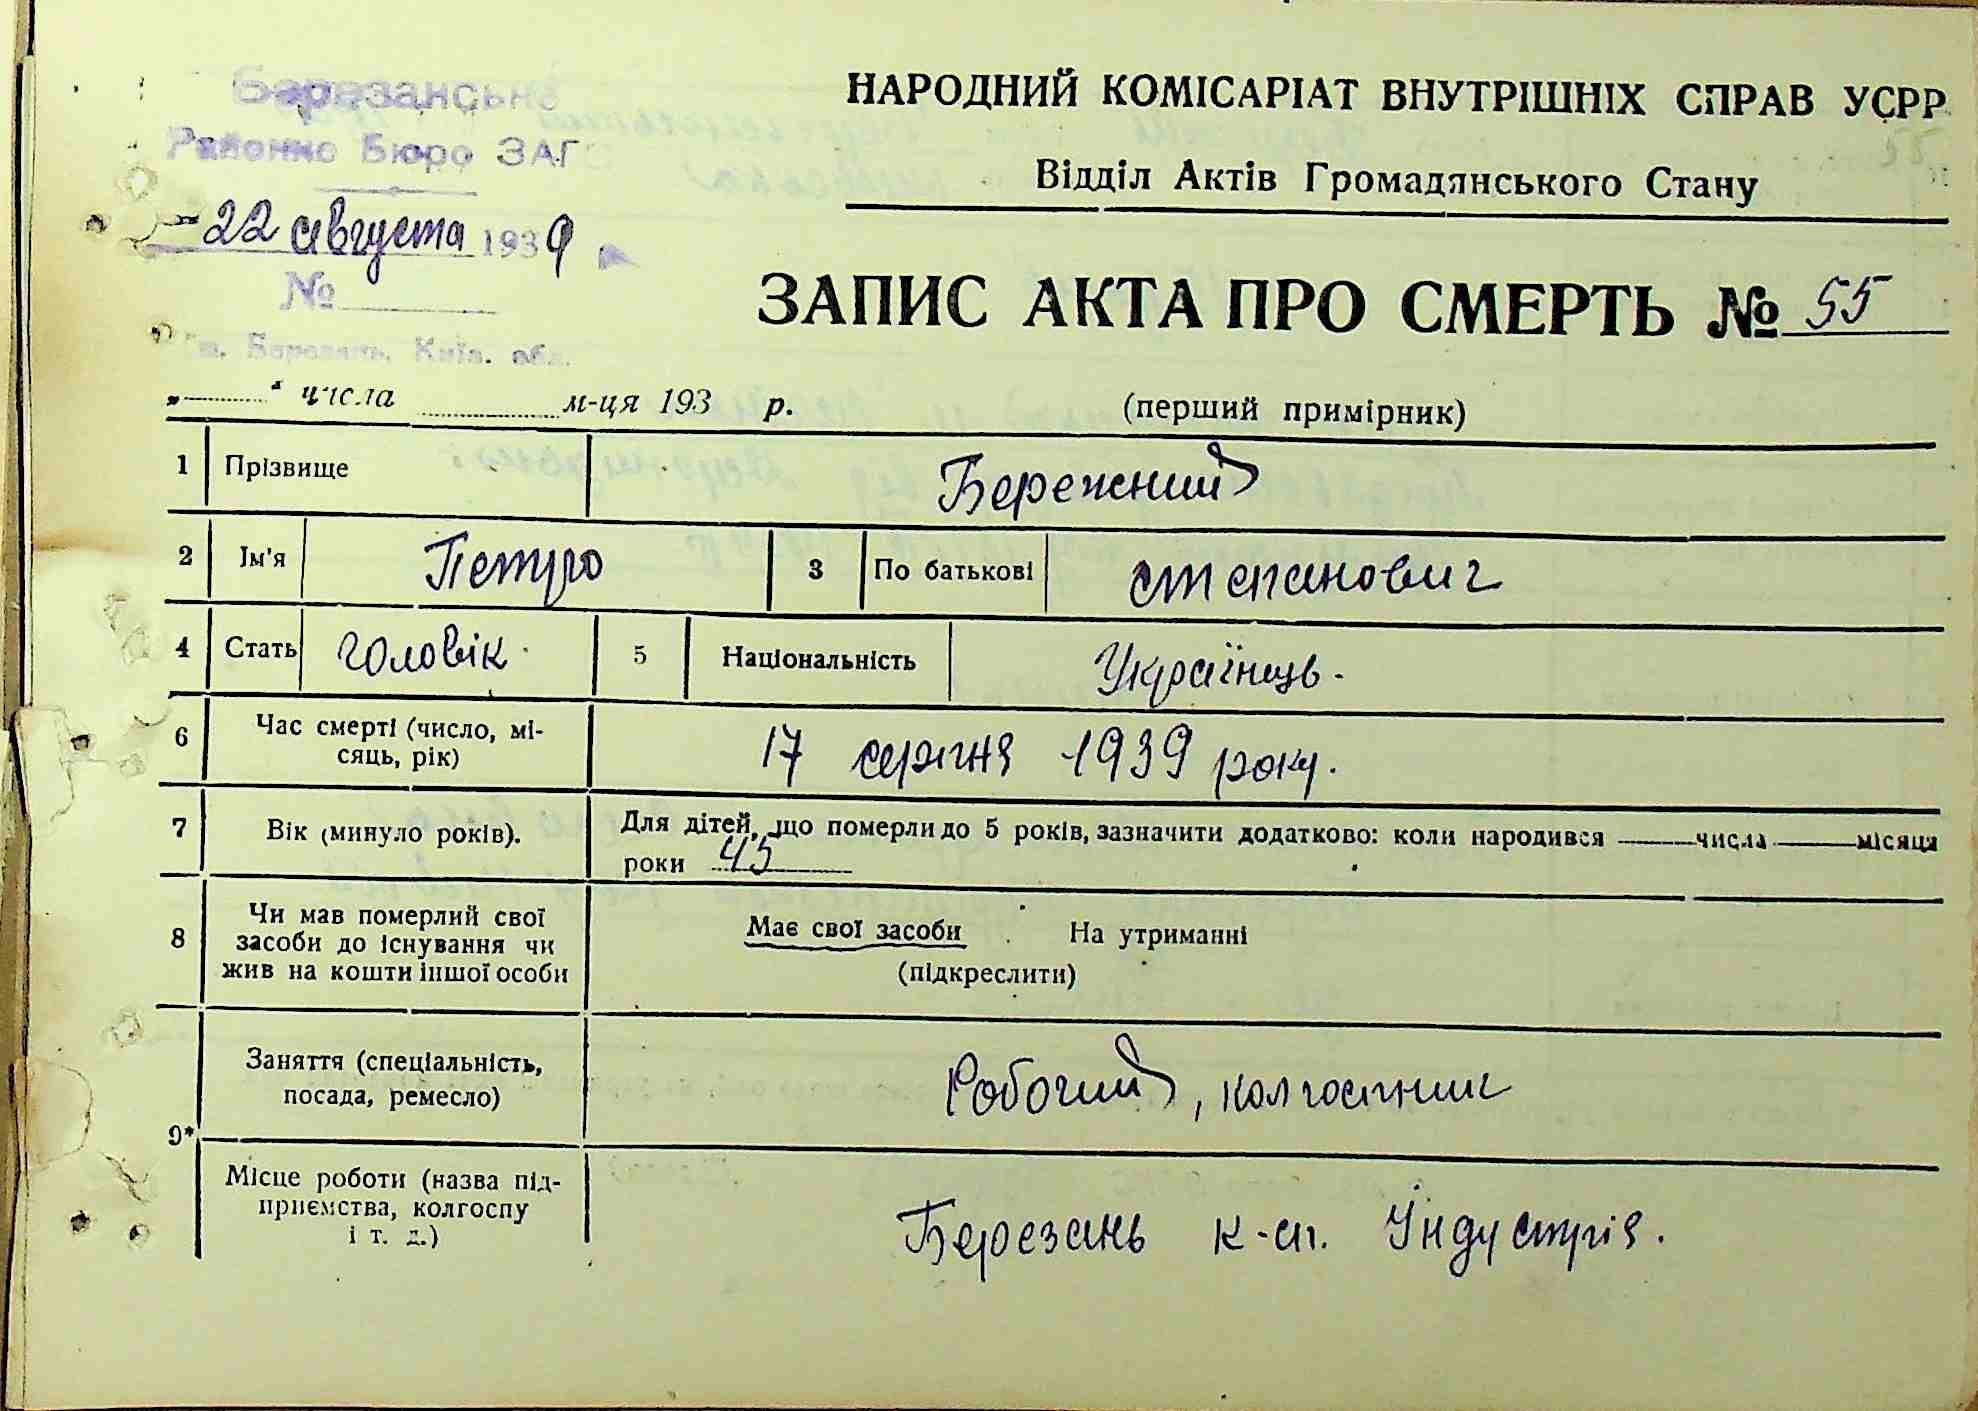 Березанське
Районне Бюро ЗАГС
22 августа 1939
№
м. Березань, Київ. обл.
НАРОДНИЙ КОМІСАРІАТ ВНУТРІШНІХ СПРАВ УСРР
Відділ Актів Громадянського Стану
ЗАПИС АКТА ПРО СМЕРТЬ № 55
„ “ числа м-ця 193 р. (перший примірник)
1 Прізвище Бережний
2 Ім'я Петро 3 По батькові степанович
4 Стать чоловік. 5 Національність Українець.
6 Час смерті (число, мі-
сяць, рік) 17 серпня 1939 року.
7 Вік (минуло років). Для дітей, що померли до 5 років, зазначити додатково: коли народився числа місяця
роки 45
8 Чи мав померлий свої
засоби до існування чи
жив на кошти іншої особи
Має свої засоби На утриманні
(підкреслити)
9*
Заняття (спеціальність,
посада, ремесло) Робочий, колгоспник
Місце роботи (назва під-
приємства, колгоспу
і т. д.) Березань к-сп. Індустрія.